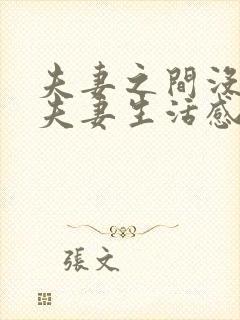 夫妻之間沒
夫妻生活感
張文